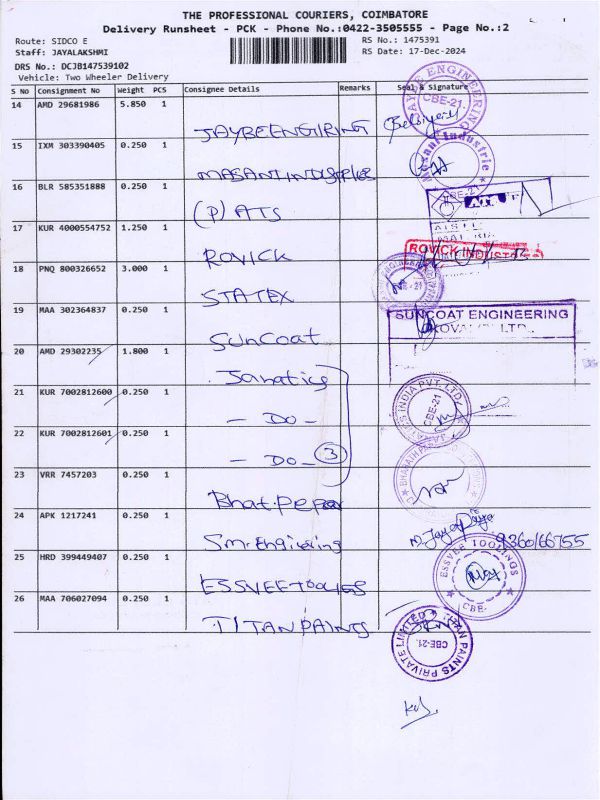 THE PROFESSIONAL COURIERS, COIMBATORE
Delivery Runsheet - PCK - Phone No.:0422-3505555 - Page No.:2
Route: SIDCO E
RS No.: 1475391
Staff: JAYALAKSHMI
RS Date: 17-Dec-2024
DRS No.: DCJB147539102
Vehicle: Two Wheeler Delivery
S No Consignment No Weight PCS Consignee Details Remarks Seal & Signature
14 AMD 29681986 5.850 1
JAYBEE ENGIRING
JAYBEE ENGINEERING CBE-21.
15 IXM 303390405 0.250 1
MASANI INDUSTRIES
Masani Industrie CBE-21
16 BLR 585351888 0.250 1
(P) ATS
17 KUR 4000554752 1.250 1
ROVICK
ROVICK INDUST
18 PNQ 800326652 3.000 1
STATEX
CBE-21
19 MAA 302364837 0.250 1
SUNCOAT
SUNCOAT ENGINEERING
KOVAI (P) LTD.,
20 AMD 29302235 1.800 1
Janatics
21 KUR 7002812600 0.250 1
- DO -
JANATICS INDIA PVT. LTD. CBE-21
22 KUR 7002812601 0.250 1
- DO - 3
23 VRR 7457203 0.250 1
Bhat. Peper
24 APK 1217241 0.250 1
Sm. Engineering
9360166755
25 HRD 399449407 0.250 1
ESSVEE TOOLIGS
ESSVEE TOOLINGS CBE-
26 MAA 706027094 0.250 1
TITAN PAINTS
TITAN PAINTS PRIVATE LIMITED CBE-21.